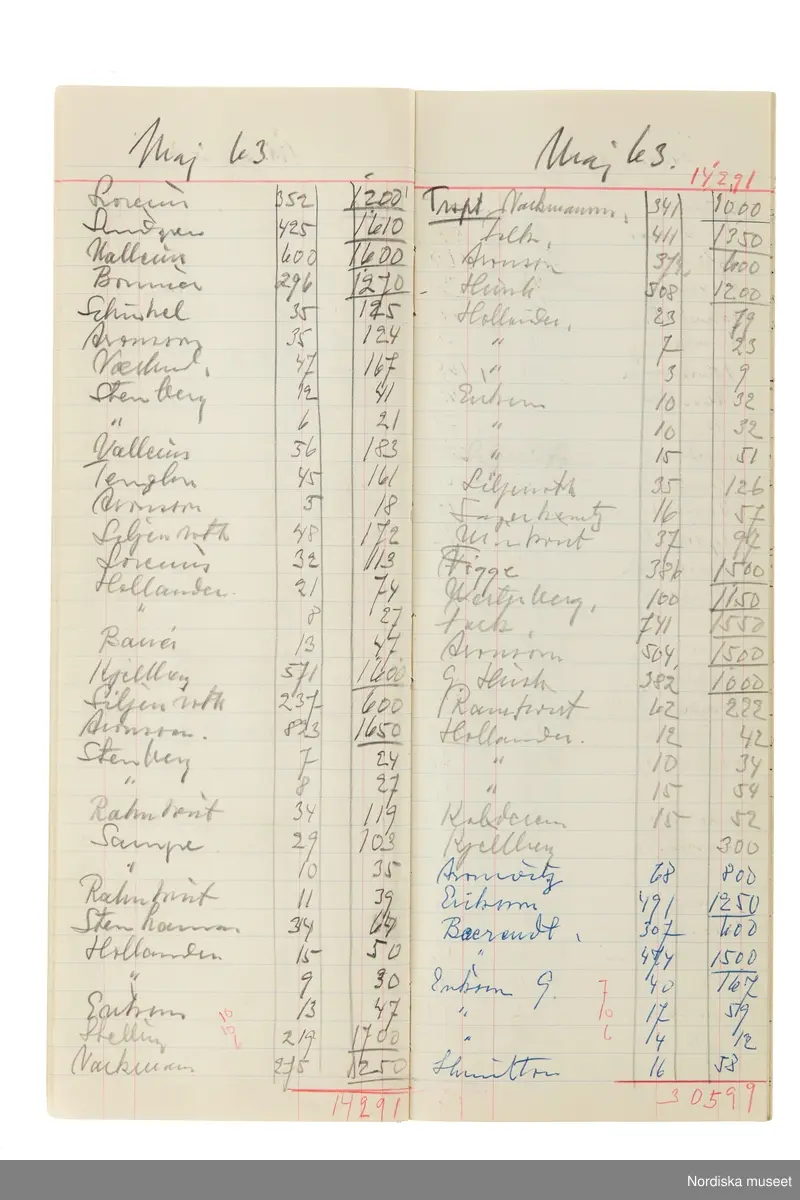 Maj 63
Lorenius 352 1200
Lindgren 425 1610
Walleius 600 1600
Bonnier 296 1270
Schinkel 35 125
Aronson 35 124
47 167
Stenberg 12 41
" 6 21
Valleius 36 183
Tenglon 45 161
Aronson 5 18
Siljenroth 48 172
Lorenius 32 113
Hollander. 21 74
" 8 27
Baner 13 47
Kjellberg 571 1600
Siljenroth 237 600
Aronson. 823 1650
Stenberg 7 24
" 8 27
Rahmkvist 34 119
Sampe 29 103
" 10 35
Rahmkvist 11 39
Stenhammar 34 67
Hollander 15 50
" 9 30
Erikson 13 47
Stelling 219 1700
Vackmann 275 1250
14291
Maj 63.
14291
Trspt Vackmann, 341 1000
Falk, 411 1350
Aronson 372 600
Hirsch 508 1200
Hollander, 23 79
" 7 23
" 3 9
Erikson 10 32
" 10 32
" 15 51
Siljenroth 35 126
16 57
37 92
Figge 386 1500
Westerberg, 100 1150
Falk, 741 1550
Aronson 504 1500
G. Hirsch 382 1000
Ramkvist 62 222
Hollander. 12 42
" 10 34
" 15 54
15 52
Kjellberg 300
Aronovitz 68 800
Erikson 491 1250
Baerendt, 307 600
" 474 1500
Erikson G. 7 40 167
" 10 17 59
" 6 14 12
16 58
30599